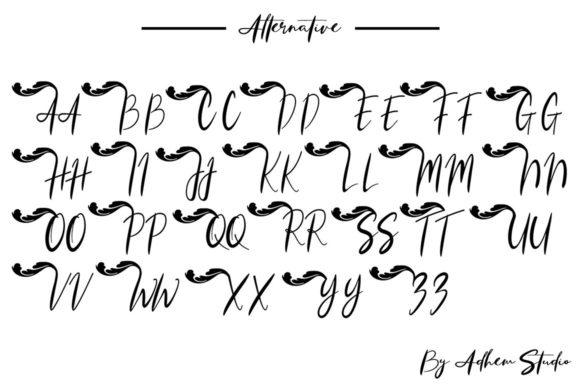 Alternative
AA BB CC DD EE FF GG
HH II JJ KK LL MM NN
OO PP QQ RR SS TT UU
VV WW XX YY ZZ
By Adhem Studio